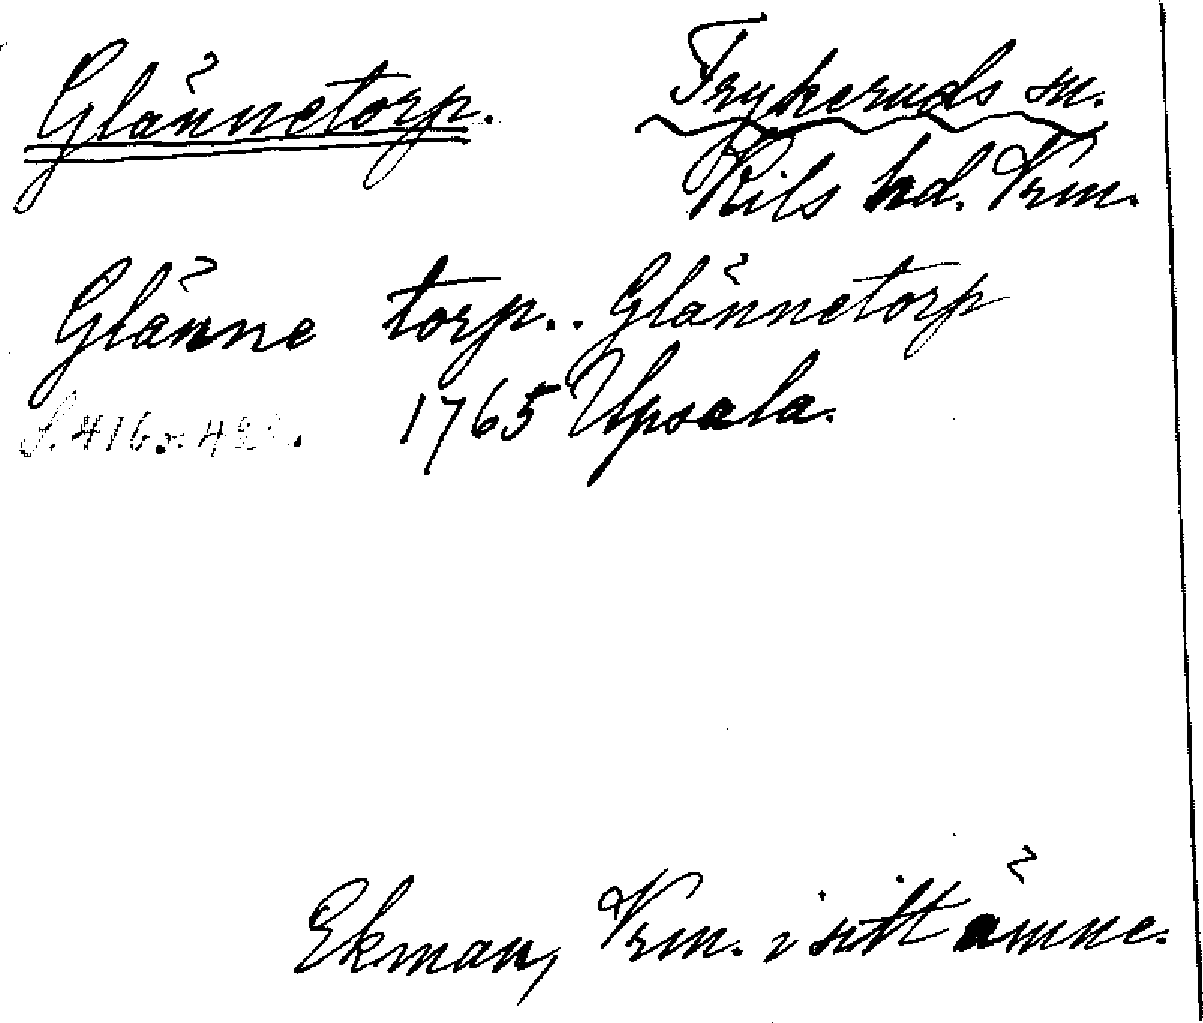 Glännetorp. Frykeruds sn.
Kils hd. Vrm.
Glänne torp.. Glännetorp
S. 416 o. 422. 1765 Upsala.
Ekman, Vrm. i sitt ämne.